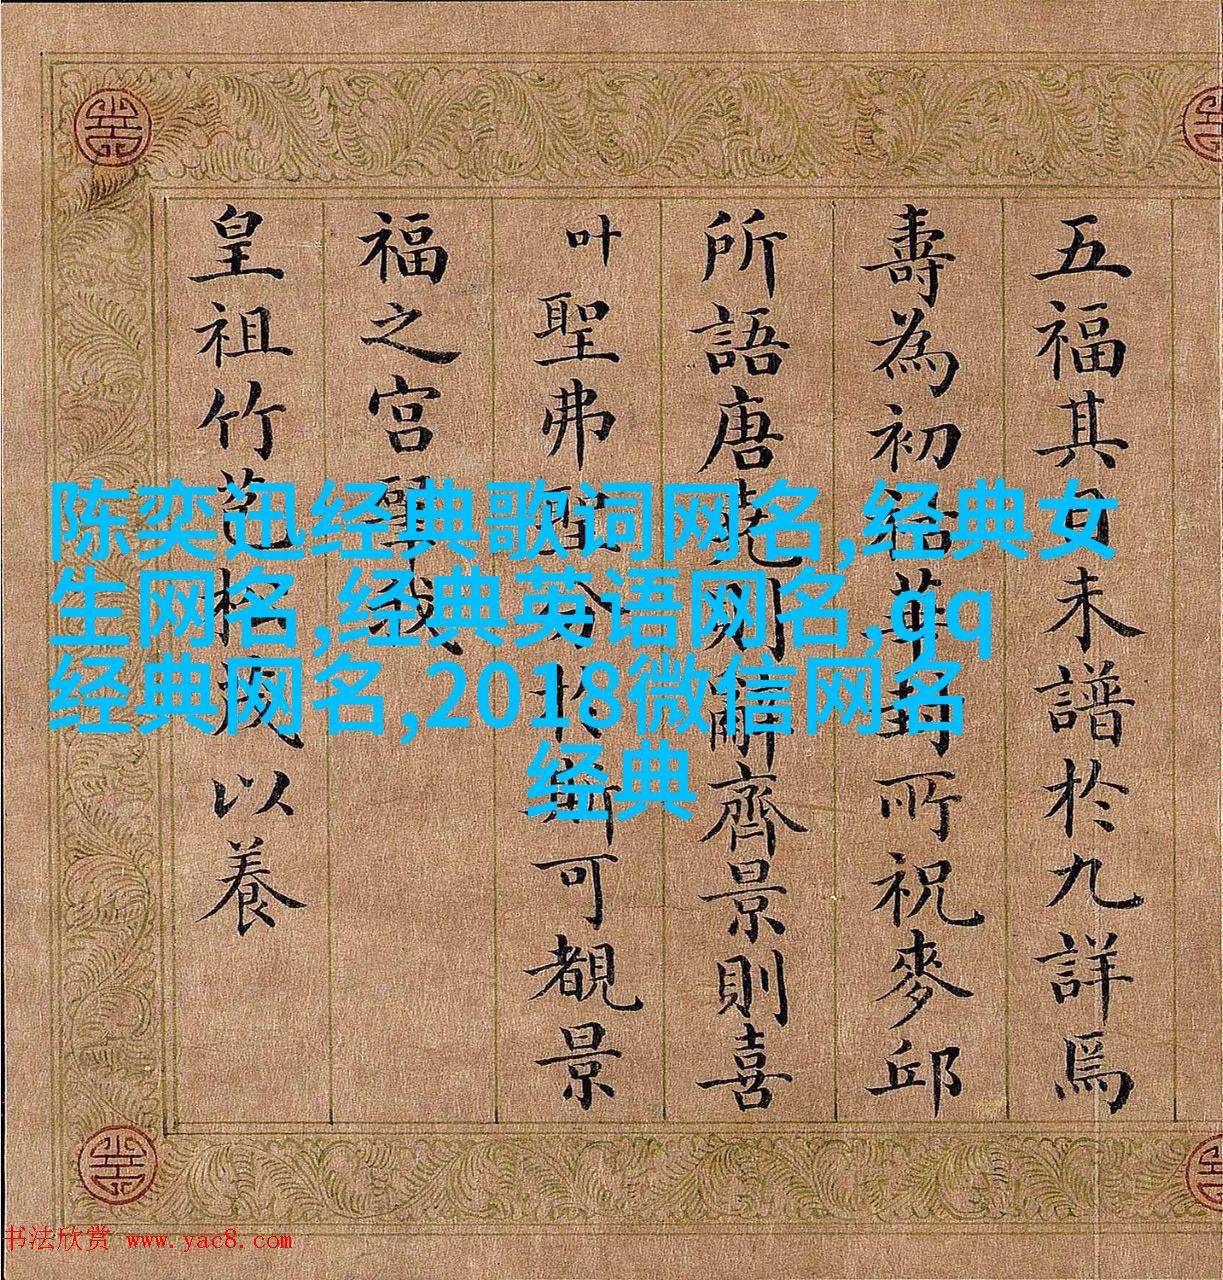 五福其未譜於九詳焉
壽為初華封所祝麥邱
所語唐堯則辭齊景則喜
叶聖弗於斯可覩景
福之宮我
皇祖竹苞松茂以養
陈奕迅经典歌词网名,经典女
生网名,经典英语网名,qq
经典网名,2018微信网名
经典
书法欣赏 www.yac8.com